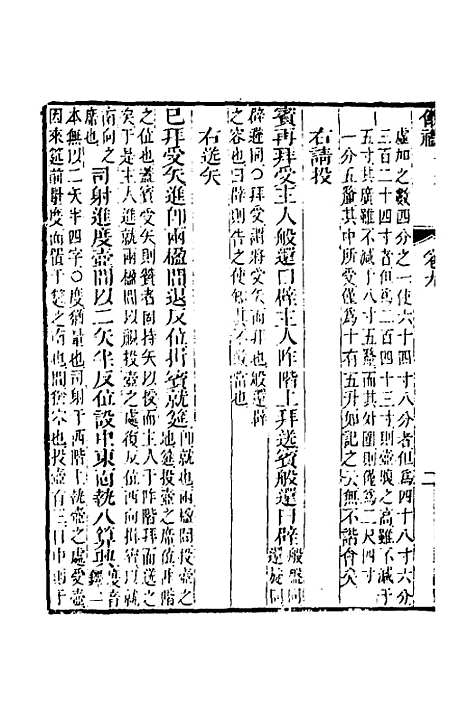 儀禮
卷九
二
虛加之數四分之一使六十四寸八分者但爲四十八寸六分
三百二十四寸者但爲二百四十三寸則壺腹之高雖不減于
五寸其廣雖不減于八寸五釐而其外圍則僅爲二尺四寸
一分五釐其中所受僅爲十有五升如記之云無不諧會矣
右請投
賓再拜受主人般還曰辟主人阼階上拜送賓般還曰辟般盤同還旋同
辟避同○拜受謂將受矢而拜也般還辟
之容也曰辟則告之使知其不敢當也
右送矢
已拜受矢進即兩楹間退反位揖賓就筵即就也兩楹間投壺之地筵投壺之席位阼階
之位也蓋賓受矢則贊者固持矢以授而主人于阼階拜而送之
矢于是主人進就兩楹間以視投壺之處復反位西向揖賓以就
南向之席也司射進度壺間以二矢半反位設中東面執八算興度音鐸一
本無以二矢半四字○度猶量也司射于西階上執壺之處受壺
因來筵前量度而置于筵之南也間猶去也投壺有三日中于